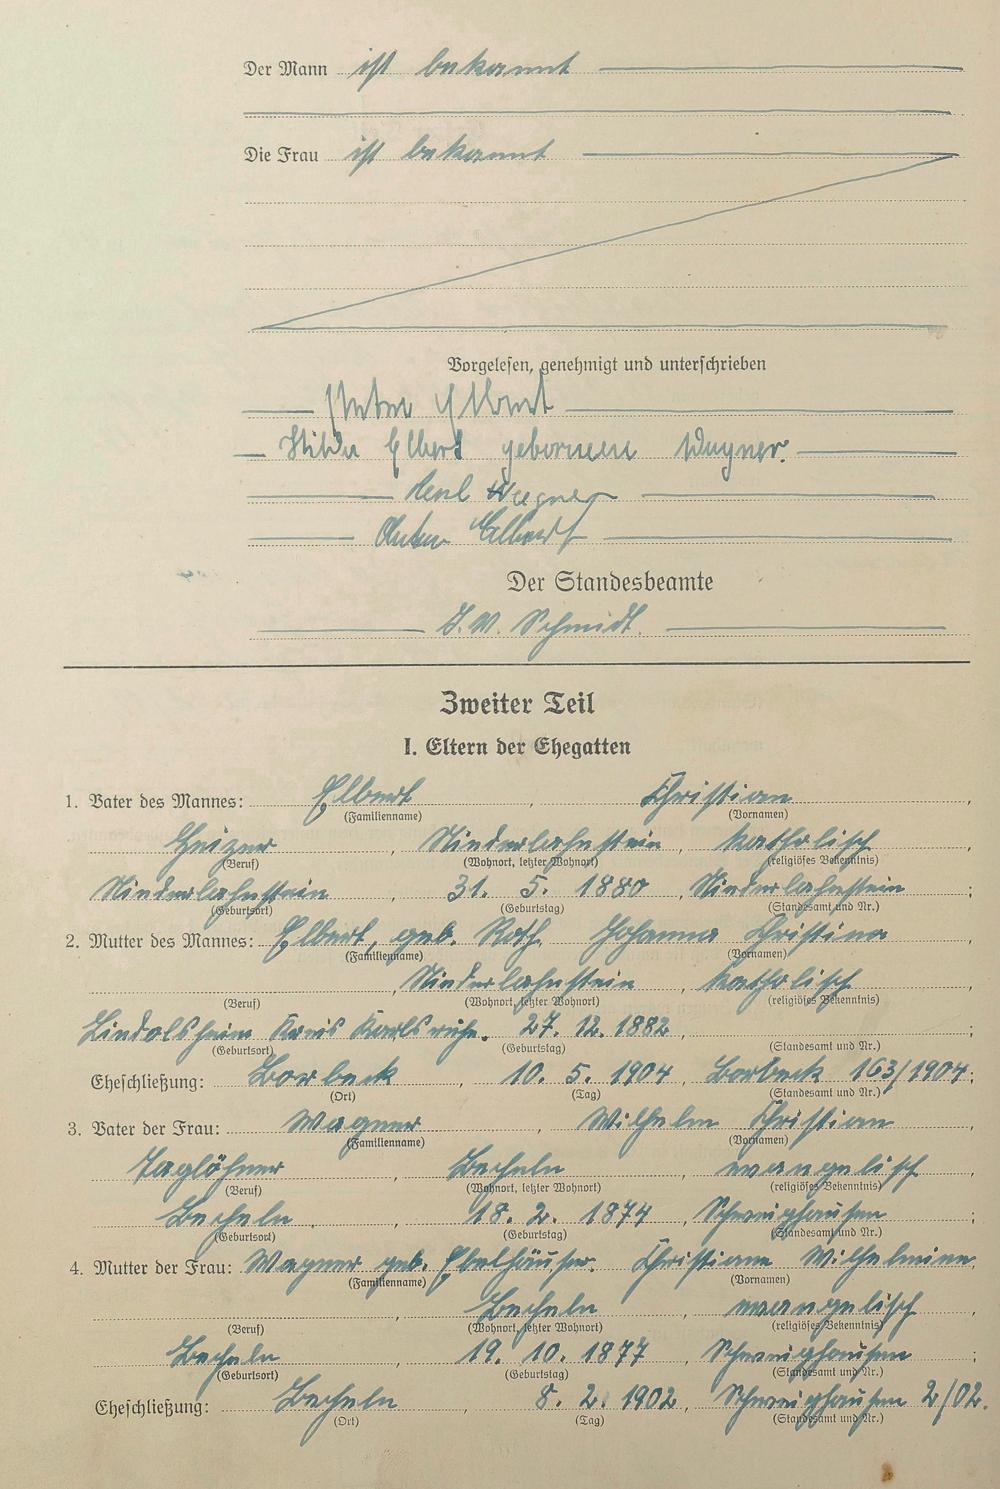 Der Mann ist bekannt
Die Frau ist bekannt
Vorgelesen, genehmigt und unterschrieben
Elbert
Hilda Elbert geborenen Wagner.
Wagner
Anton Elbert
Der Standesbeamte
J.V. Schmidt.
Zweiter Teil
I. Eltern der Ehegatten
1. Vater des Mannes: Elbert, Christian,
(Familienname) (Vornamen)
Heizer, Niederlahnstein, katholisch
(Beruf) (Wohnort, letzter Wohnort) (religiöses Bekenntnis)
Niederlahnstein, 31. 5. 1880, Niederlahnstein;
(Geburtsort) (Geburtstag) (Standesamt und Nr.)
2. Mutter des Mannes: Elbert, geb. Roth, Johanna Christina,
(Familienname) (Vornamen)
, Niederlahnstein, katholisch,
(Beruf) (Wohnort, letzter Wohnort) (religiöses Bekenntnis)
Liedolsheim Kreis Karlsruhe, 27. 12. 1882, ;
(Geburtsort) (Geburtstag) (Standesamt und Nr.)
Eheschließung: Borbeck, 10. 5. 1904, Borbeck 163/1904;
(Ort) (Tag) (Standesamt und Nr.)
3. Vater der Frau: Wagner, Wilhelm Christian,
(Familienname) (Vornamen)
Taglöhner, Becheln, evangelisch,
(Beruf) (Wohnort, letzter Wohnort) (religiöses Bekenntnis)
Becheln, 18. 2. 1874, Schweighausen;
(Geburtsort) (Geburtstag) (Standesamt und Nr.)
4. Mutter der Frau: Wagner geb. Ebelhäuser, Christiane Wilhelmine,
(Familienname) (Vornamen)
, Becheln, evangelisch,
(Beruf) (Wohnort, letzter Wohnort) (religiöses Bekenntnis)
Becheln, 19. 10. 1877, Schweighausen;
(Geburtsort) (Geburtstag) (Standesamt und Nr.)
Eheschließung: Becheln, 8. 2. 1902, Schweighausen 2/02.
(Ort) (Tag) (Standesamt und Nr.)